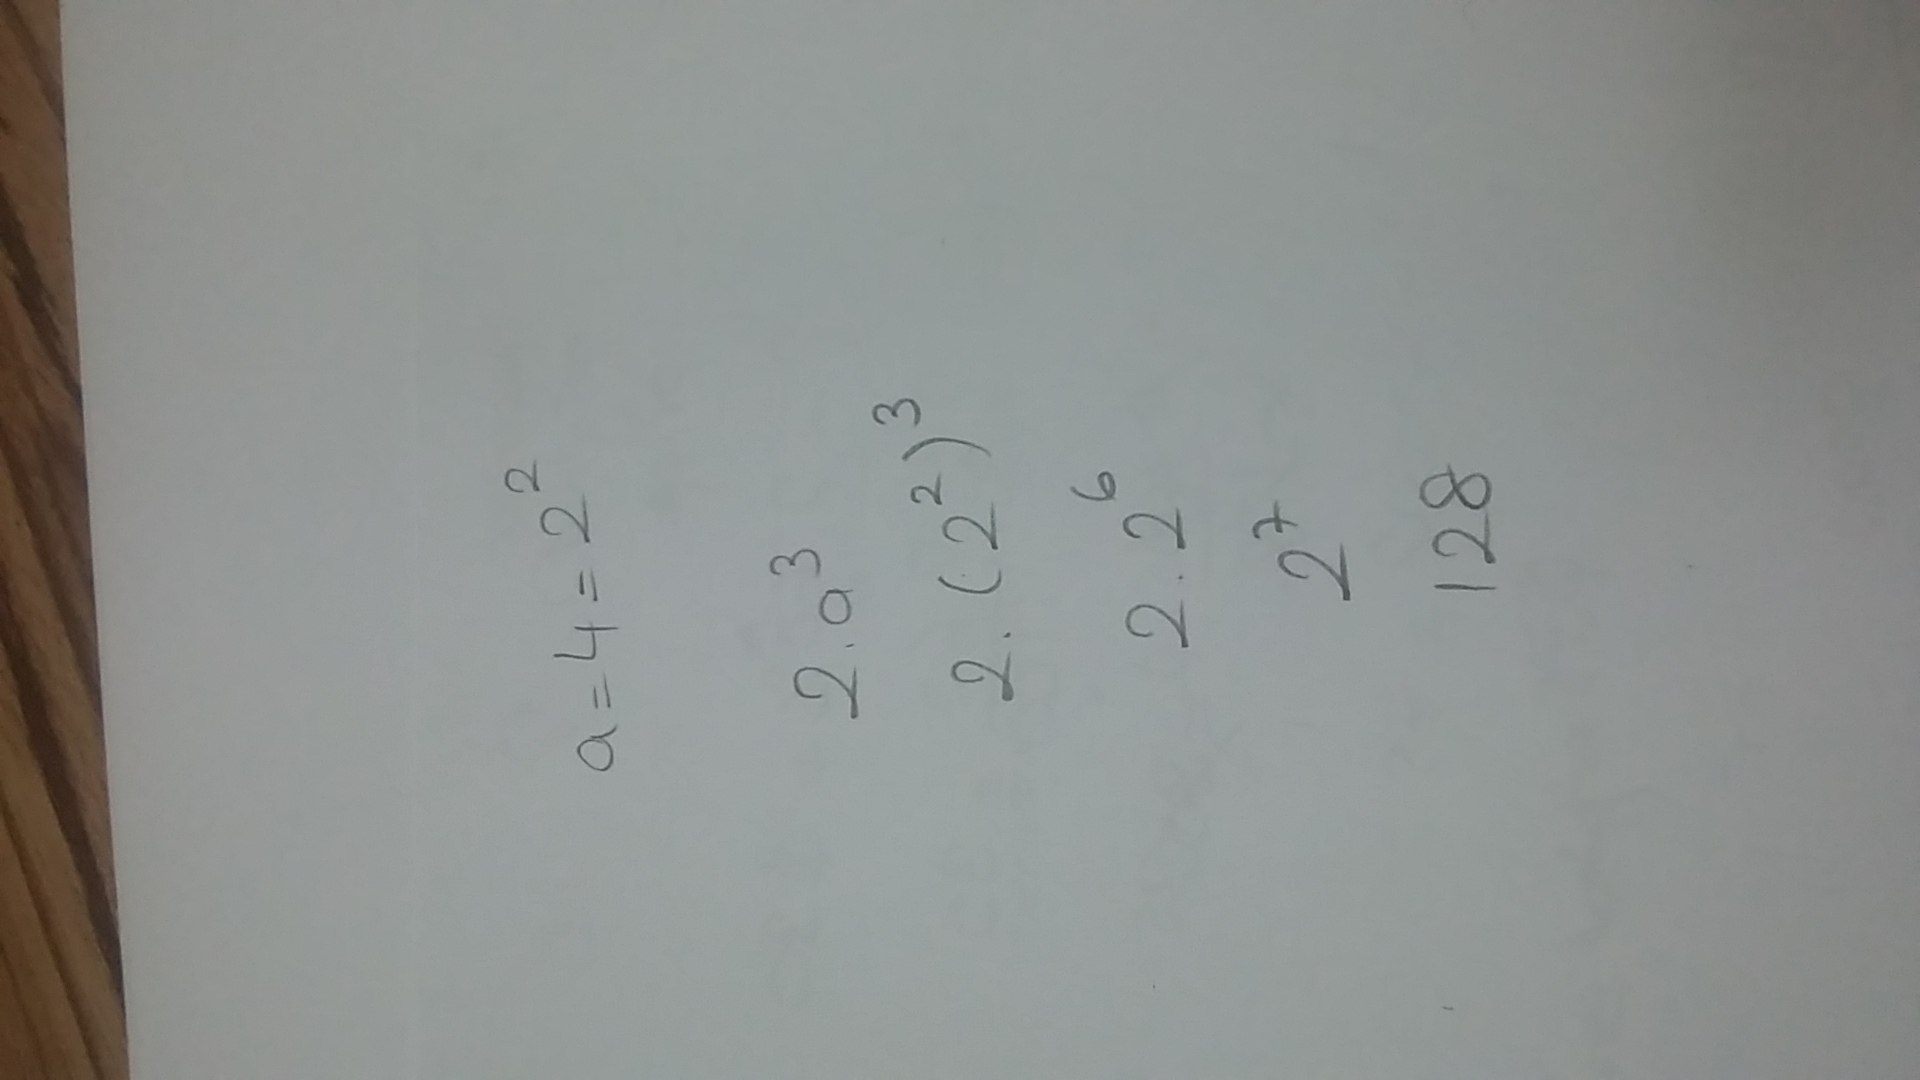 a = 4 = 2²
2 . a³
2 . (2²)³
2 . 2⁶
2⁷
128